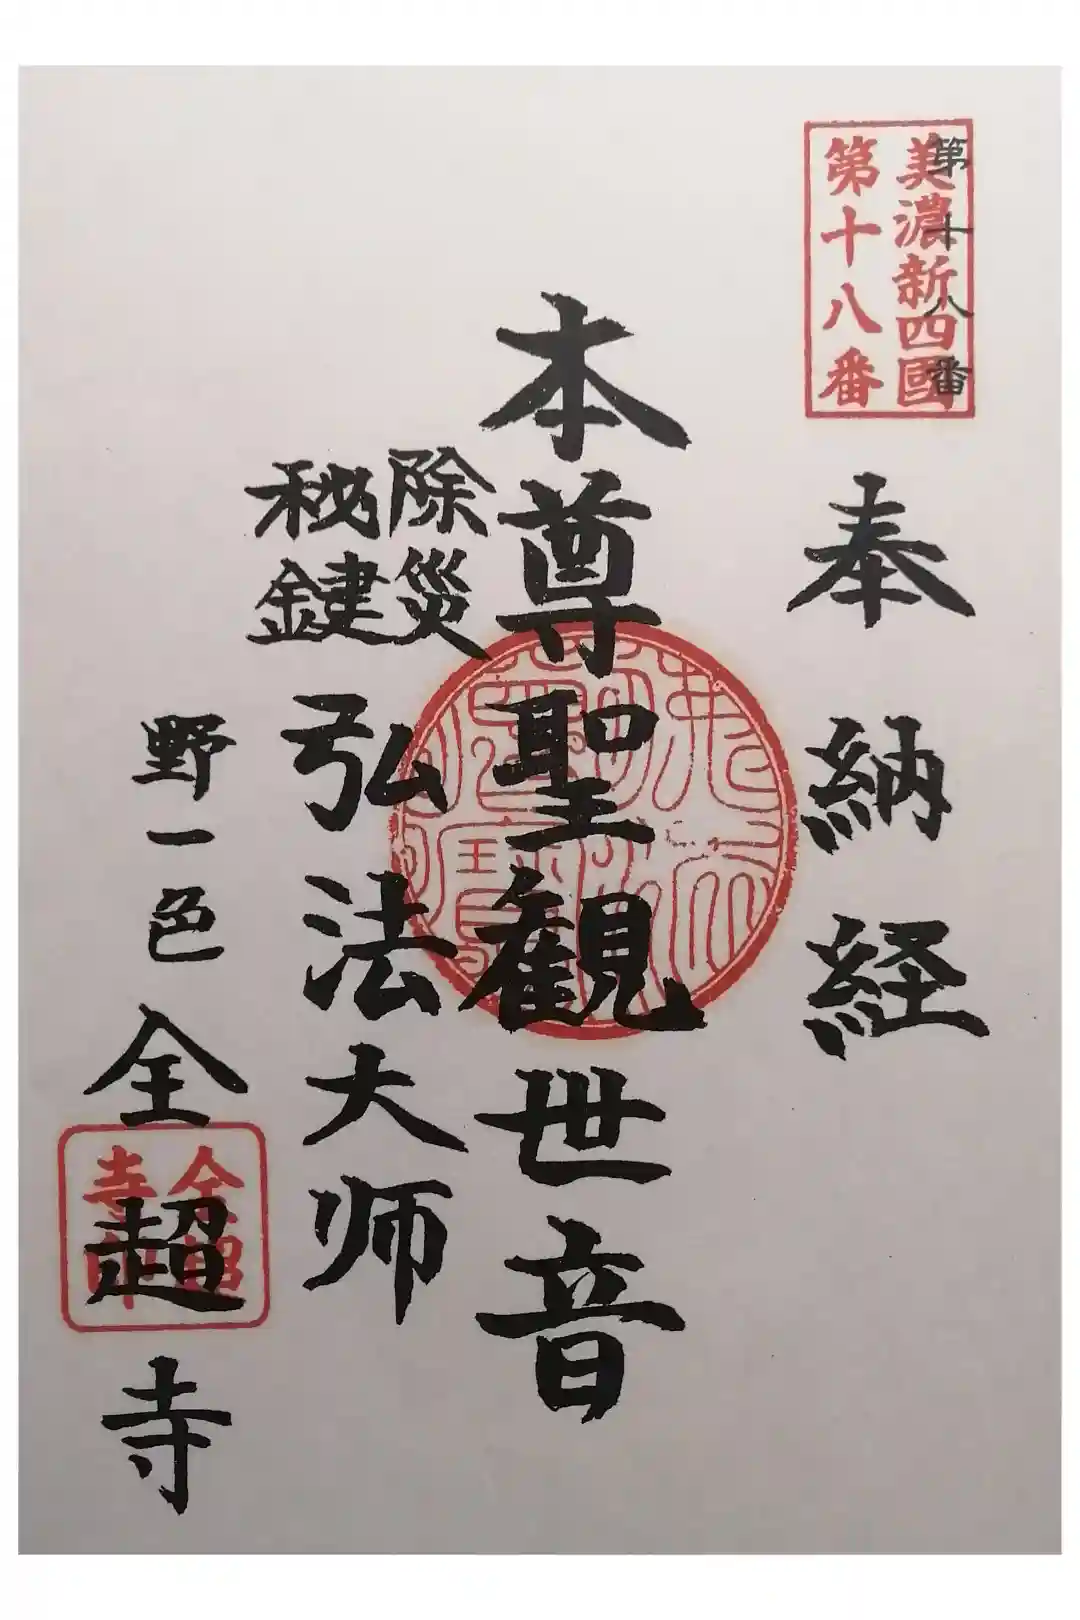 美濃新四國
第十八番
第十八番
奉納経
本尊聖観世音
除災
秘鍵
弘法大师
野一色
全超寺
全超
寺印